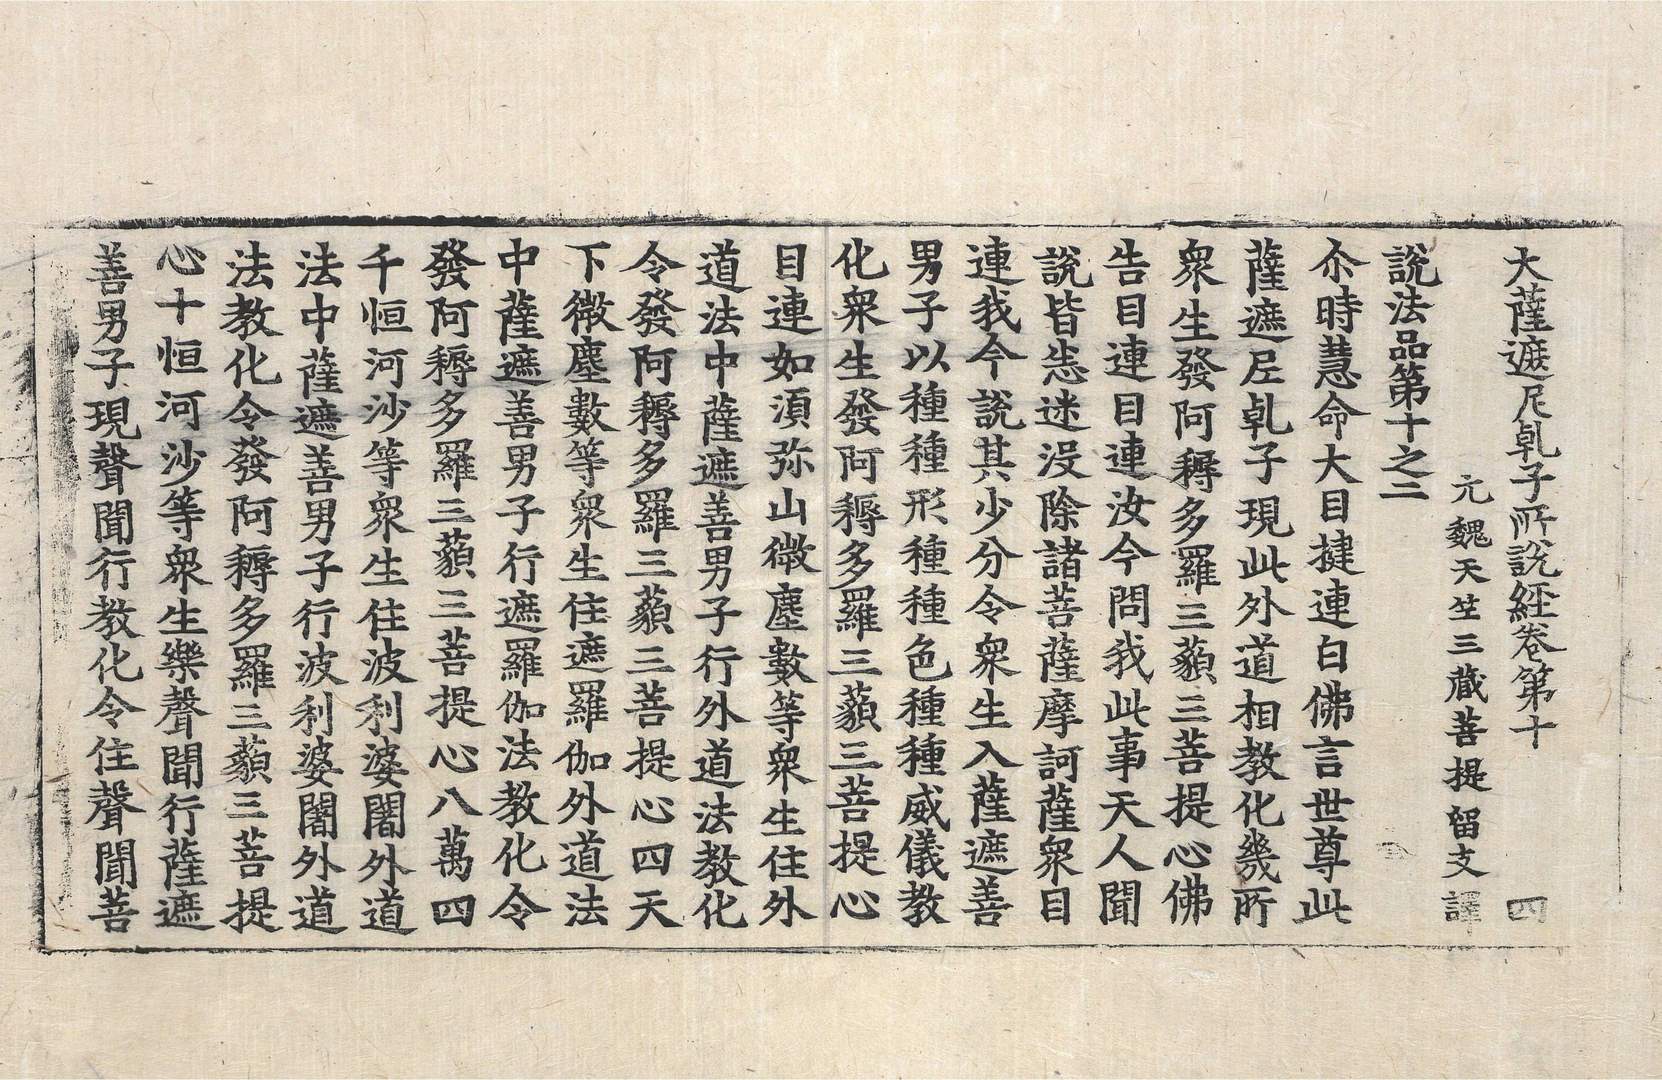 大薩遮尼乹子所說經卷第十　四
元魏天竺三藏菩提留支譯
說法品第十之二
尒時慧命大目揵連白佛言世尊此
薩遮尼乹子現此外道相教化幾所
衆生發阿耨多羅三藐三菩提心佛
告目連目連汝今問我此事天人聞
說皆悉迷没除諸菩薩摩訶薩衆目
連我今說其少分令衆生入薩遮善
男子以種種形種種色種種威儀教
化衆生發阿耨多羅三藐三菩提心
目連如湏弥山微塵數等衆生住外
道法中薩遮善男子行外道法教化
令發阿耨多羅三藐三菩提心四天
下微塵數等衆生住遮羅伽外道法
中薩遮善男子行遮羅伽法教化令
發阿耨多羅三藐三菩提心八萬四
千恒河沙等衆生住波利婆闍外道
法中薩遮善男子行波利婆闍外道
法教化令發阿耨多羅三藐三菩提
心十恒河沙等衆生樂聲聞行薩遮
善男子現聲聞行教化令住聲聞菩